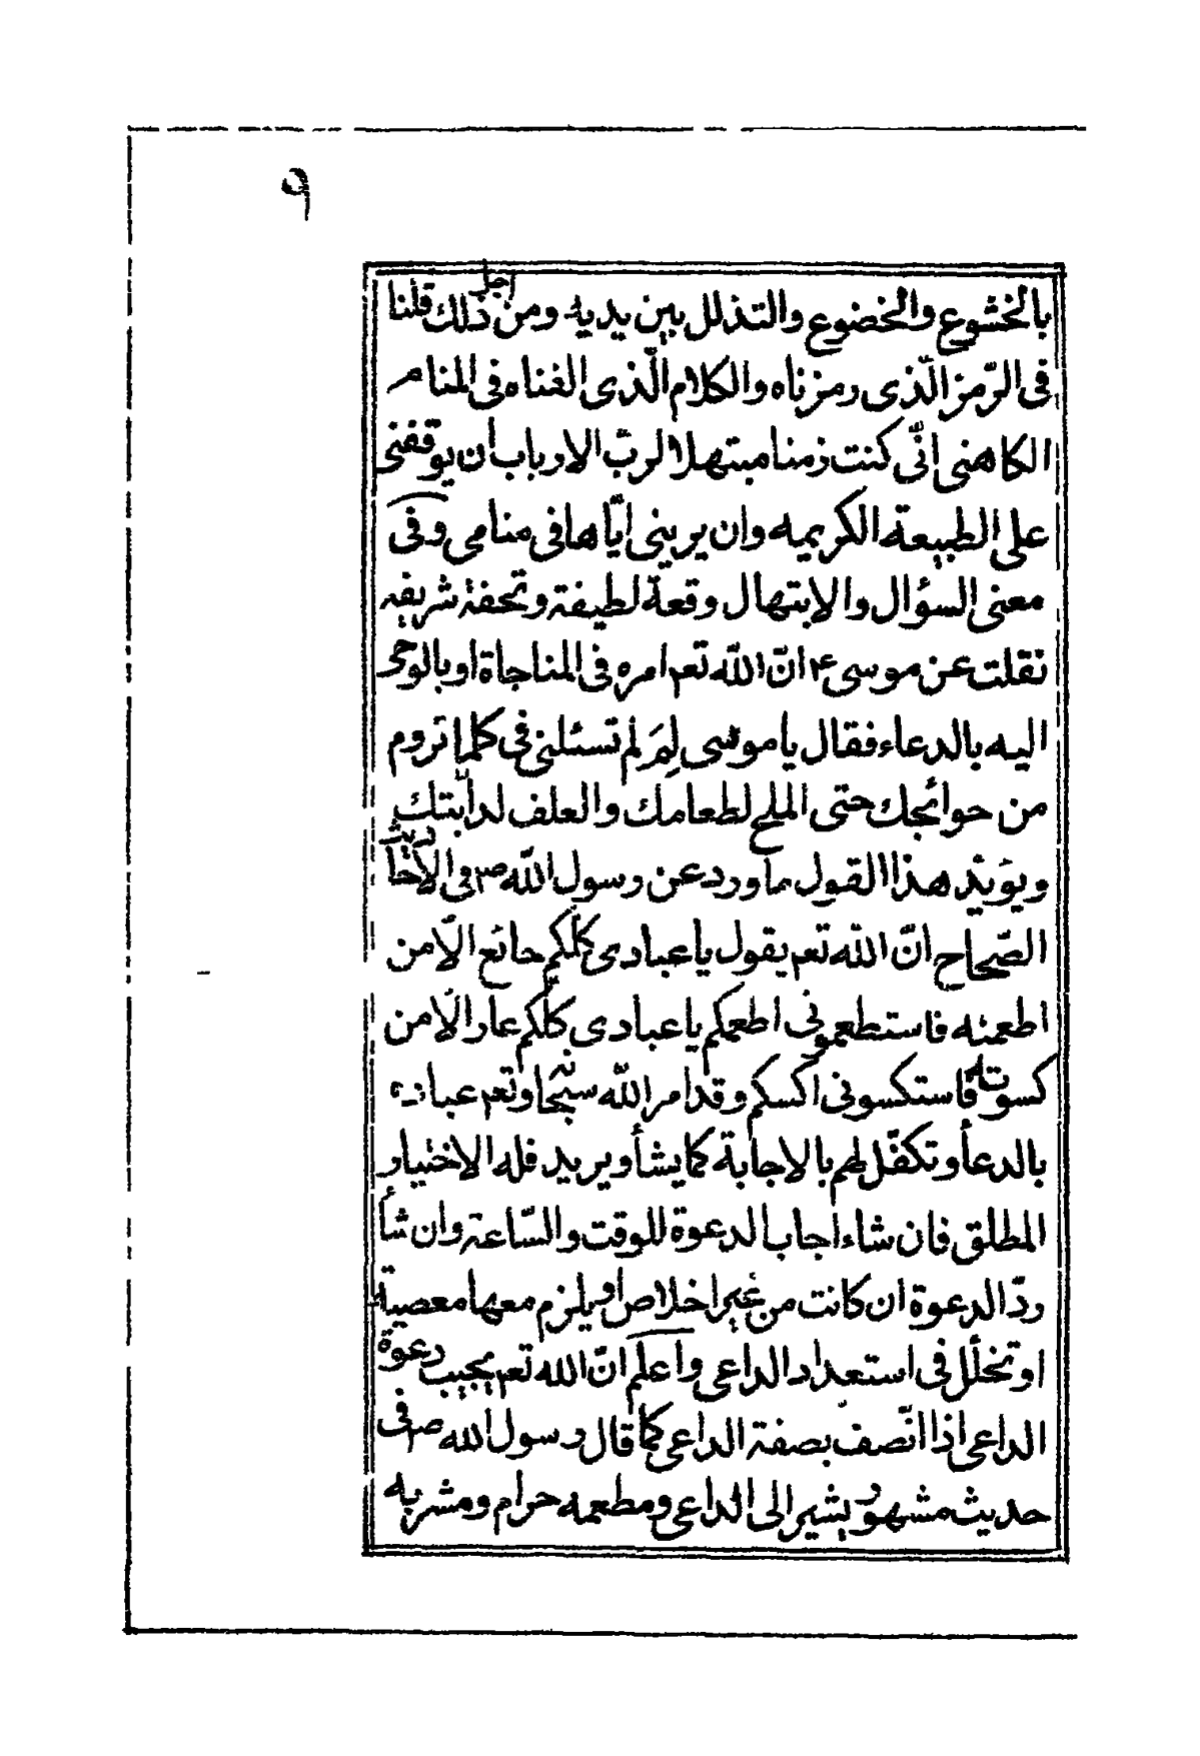 ٩
بالخشوع والخضوع والتذلل بين يديه ومن اجل ذلك قلنا
فى الرّمز الّذى رمزناه والكلام الّذى الغناه فى المنام
الكاهنى انّى كنت زمنا مبتهلا لربّ الارباب ان يوقفنى
على الطبيعة الكريمه وان يرينى ايّاها فى منامى وفى
معنى السؤال والابتهال وقعة لطيفة وتحفة شريفه
نقلت عن موسى ۴ انّ اللّه تعم امره فى المناجاة او بالوحى
اليه بالدعاء فقال يا موسى لِمَ لم تسئلنى فى كلما تروم
من حوائجك حتى الملح لطعامك والعلف لدابّتك
ويؤيّد هذا القول ما ورد عن رسول اللّه ص فى الاحاديث
الصّحاح انّ اللّه تعم يقول يا عبادى كلّكم جائع الّا من
اطعمته فاستطعمونى اطعمكم يا عبادى كلّكم عار الّا من
كسوته فاستكسونى اكسكم وقد امر اللّه سبحانه وتعم عباده
بالدعأ وتكفّل لهم بالاجابة كما يشأ ويريد فله الاختيار
المطلق فان شاء اجاب الدعوة للوقت والسّاعة وان شأ
ردّ الدعوة ان كانت من غير اخلاص او يلزم معها معصية
او تخلّل فى استعداد الداعى واعلم انّ اللّه تعم يجيب دعوة
الداعى اذا اتّصف بصفة الداعى كما قال رسول اللّه ص فى
حديث مشهور يشير الى الداعى ومطعمه حرام ومشربه